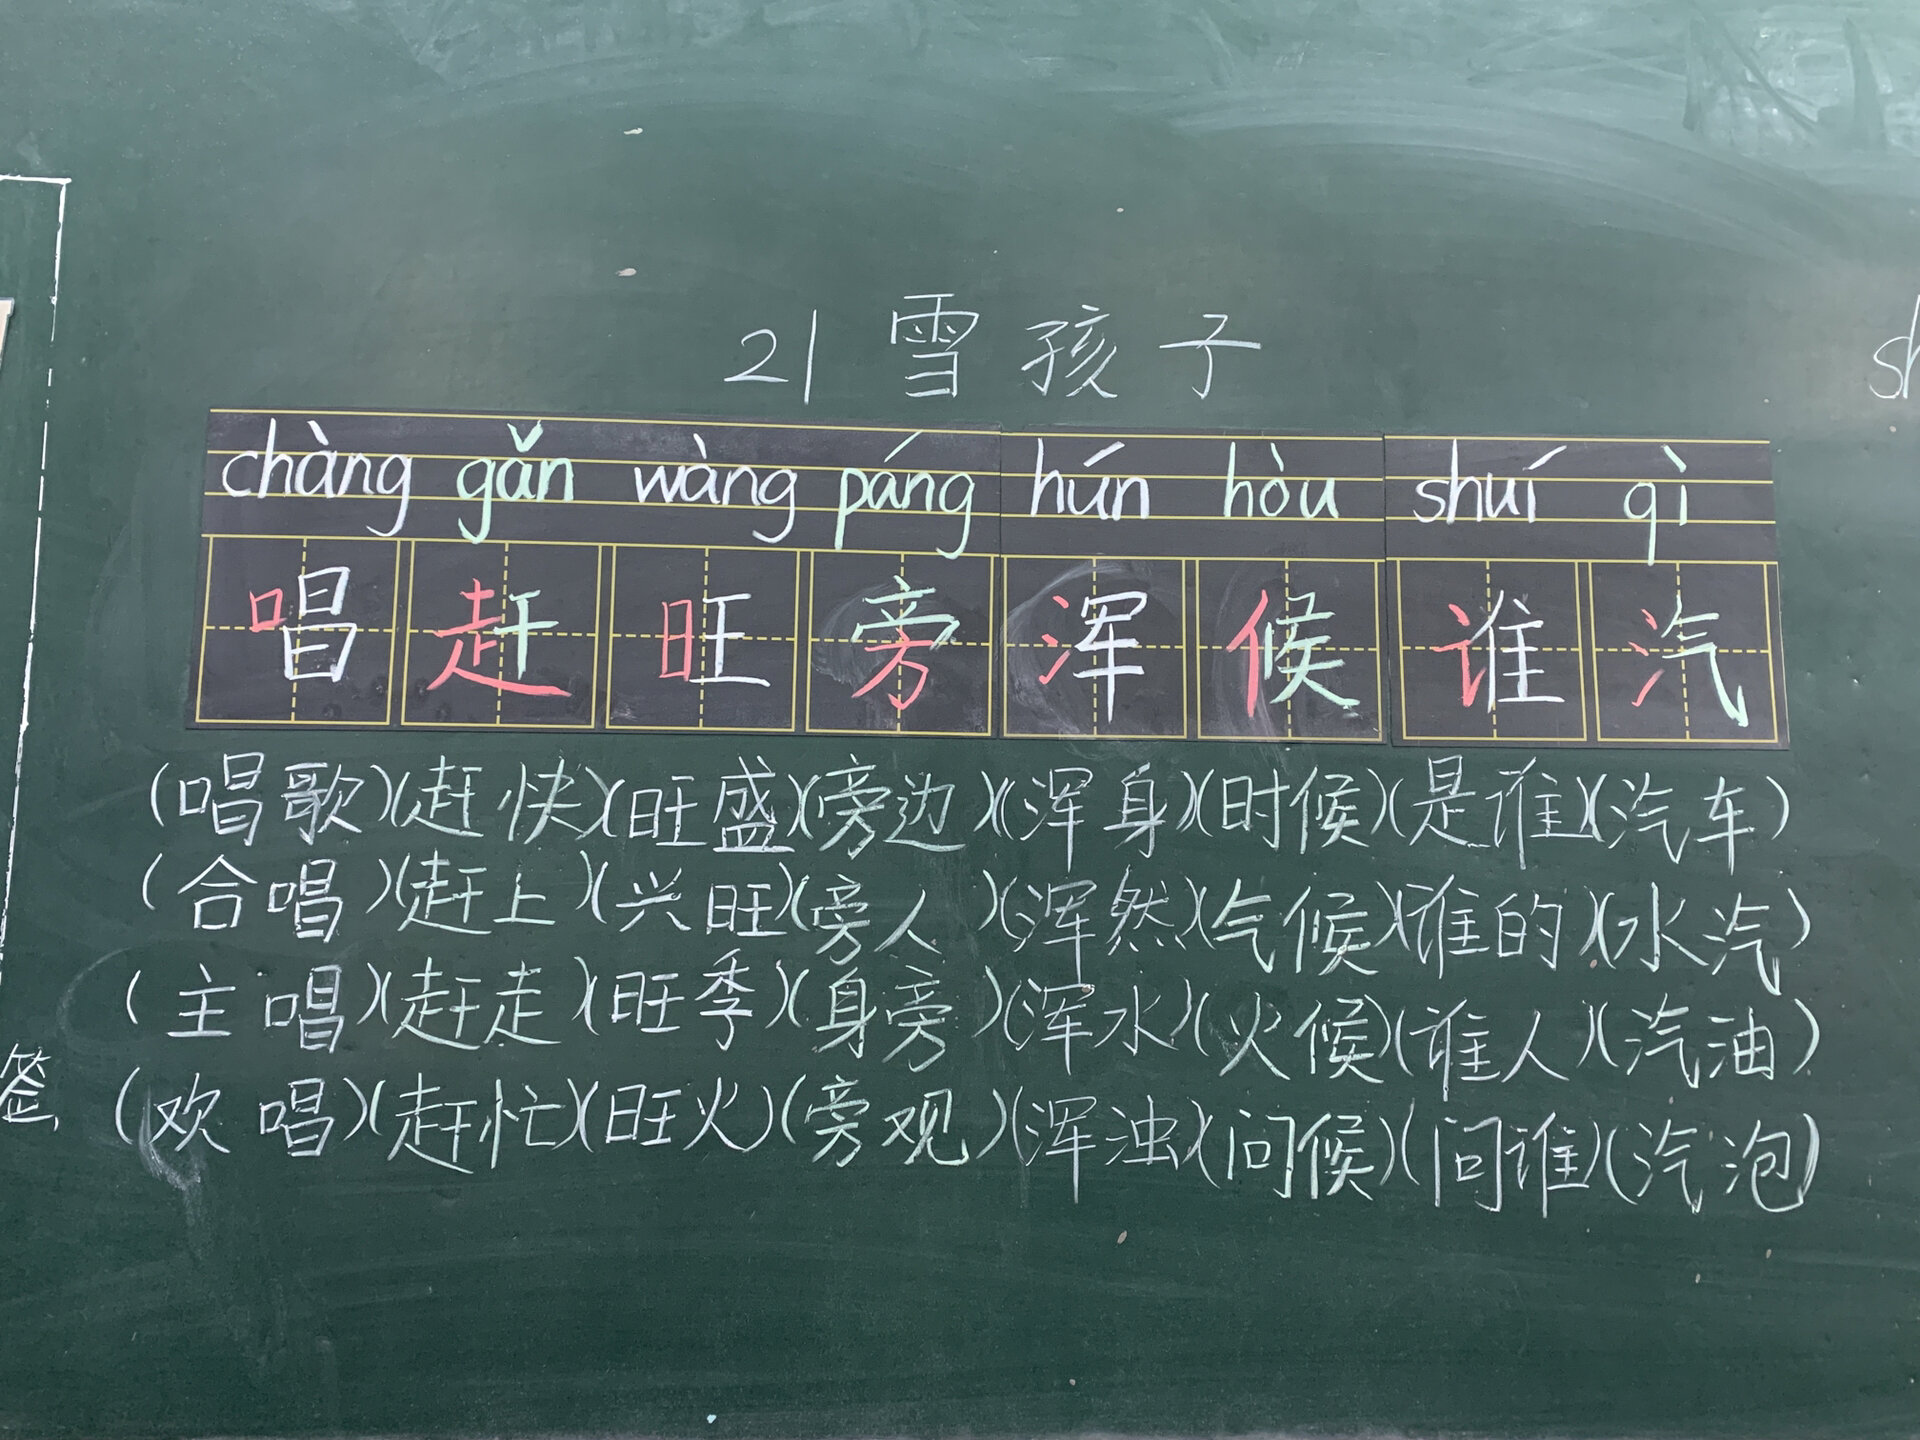 21 雪孩子
sh
chàng gǎn wàng páng hún hòu shuí qì
唱 赶 旺 旁 浑 候 谁 汽
(唱歌)(赶快)(旺盛)(旁边)(浑身)(时候)(是谁)(汽车)
(合唱)(赶上)(兴旺)(旁人)(浑然)(气候)(谁的)(水汽)
(主唱)(赶走)(旺季)(身旁)(浑水)(火候)(谁人)(汽油)
签
(欢唱)(赶忙)(旺火)(旁观)(浑浊)(问候)(问谁)(汽泡)